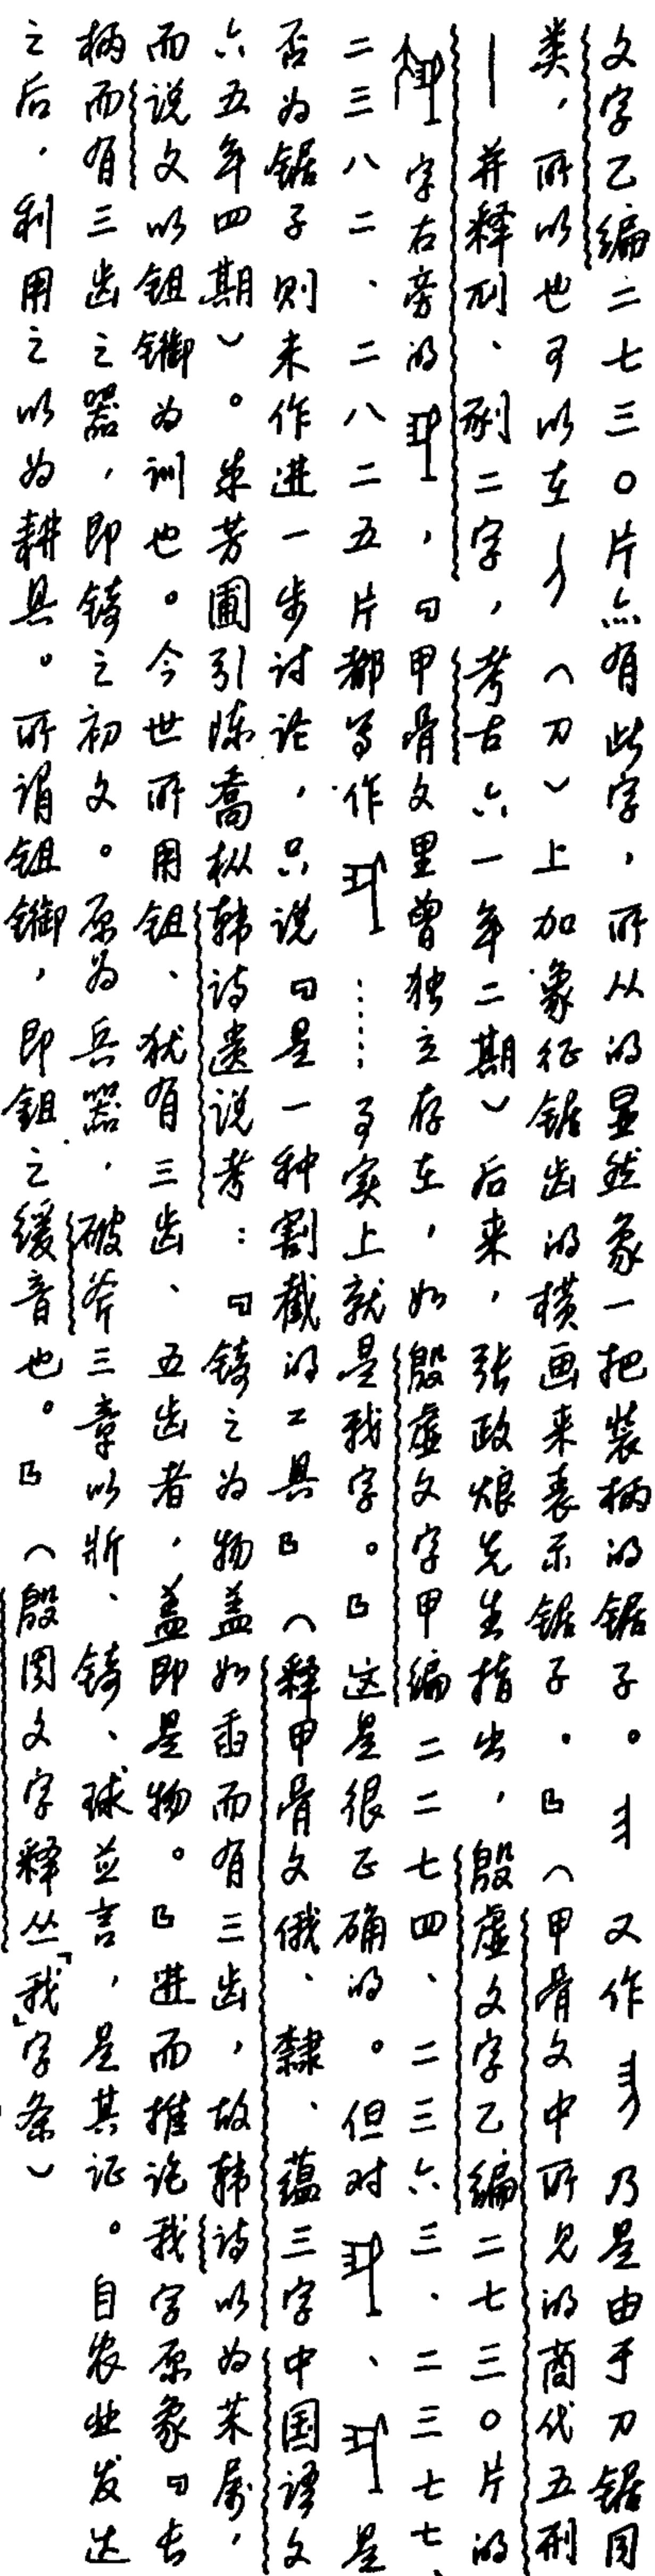 文字乙编二七三〇片亦有此字，所从的显然象一把装柄的锯子。又作乃是由于刀锯同
类，所以也可以在（刀）上加象征锯齿的横画来表示锯子。』（甲骨文中所见的商代五刑
——并释刖、劅二字，考古六一年二期）后来，张政烺先生指出，殷虚文字乙编二七三〇片的
字右旁的，『甲骨文里曾独立存在，如殷虚文字甲编二二七四、二三六三、二三七七、
二三八二、二八二五片都写作……事实上就是我字。』这是很正确的。但对、是
否为锯子则未作进一步讨论，只说『是一种割截的工具』（释甲骨文俄、隸、蕴三字中国语文
六五年四期）。朱芳圃引陈乔枞韩诗遗说考：『錡之为物盖如臿而有三齿，故韩诗以为茉属，
而说文以鉏鋤为训也。今世所用鉏、犹有三齿、五齿者，盖即是物。』进而推论我字原象『长
柄而有三齿之器，即錡之初文。原为兵器，破斧三章以斨、錡、銶並言，是其证。自农业发达
之后，利用之以为耕具。所谓鉏鋤，即鉏之缓音也。』（殷周文字释丛「我」字条）